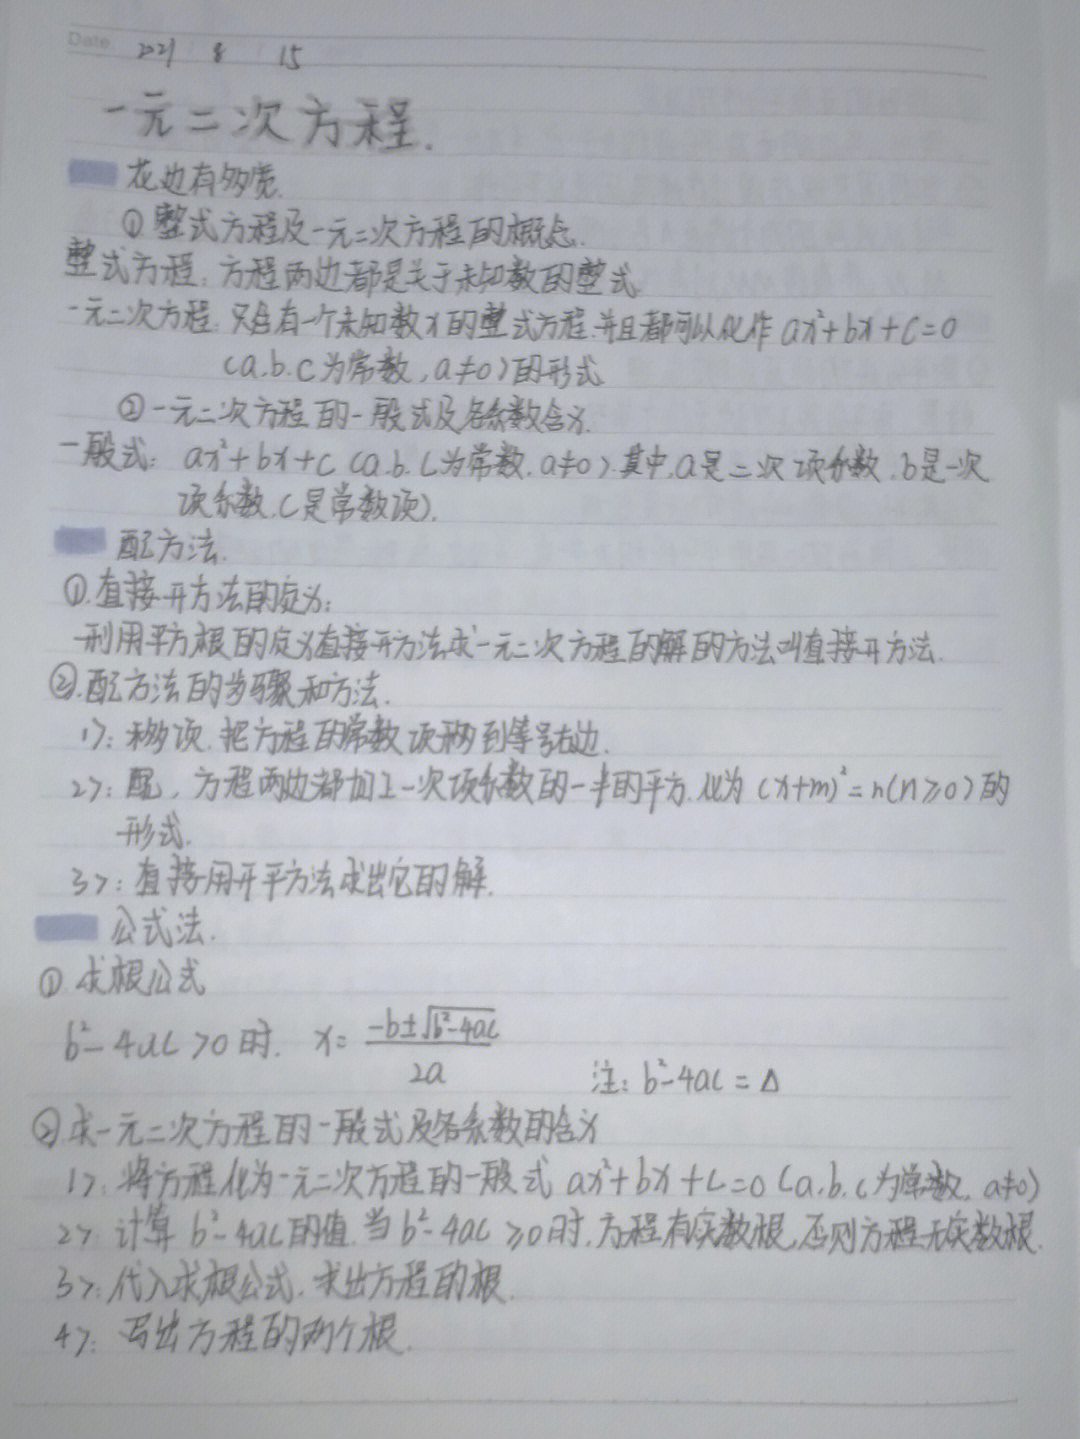 Date 2021 8 15
一元二次方程.
花边有多宽.
① 整式方程及一元二次方程的概念.
整式方程: 方程两边都是关于未知数的整式
一元二次方程: 只含有一个未知数x的整式方程.并且都可以化作 ax²+bx+c=0
(a.b.c为常数,a≠0)的形式
② 一元二次方程的一般式及各系数含义.
一般式: ax²+bx+c (a.b.c为常数.a≠0).其中.a是二次项系数.b是一次
项系数.c是常数项).
配方法.
①.直接开方法的定义:
利用平方根的定义直接开方法求一元二次方程的解的方法叫直接开方法.
②.配方法的步骤和方法.
1>: 移项.把方程的常数项移到等号右边.
2>: 配, 方程两边都加上一次项系数的一半的平方.化为 (x+m)²=n(n≥0)的
形式.
3>: 直接用开平方法求出它的解.
公式法.
① 求根公式
b²-4ac>0时. x= -b±√b²-4ac / 2a
注: b²-4ac=Δ
② 求一元二次方程的一般式及各系数的含义
1>: 将方程化为一元二次方程的一般式 ax²+bx+c=0 (a.b.c为常数. a≠0)
2>: 计算 b²-4ac的值.当 b²-4ac≥0时.方程有实数根,否则方程无实数根.
3>: 代入求根公式.求出方程的根.
4>: 写出方程的两个根.